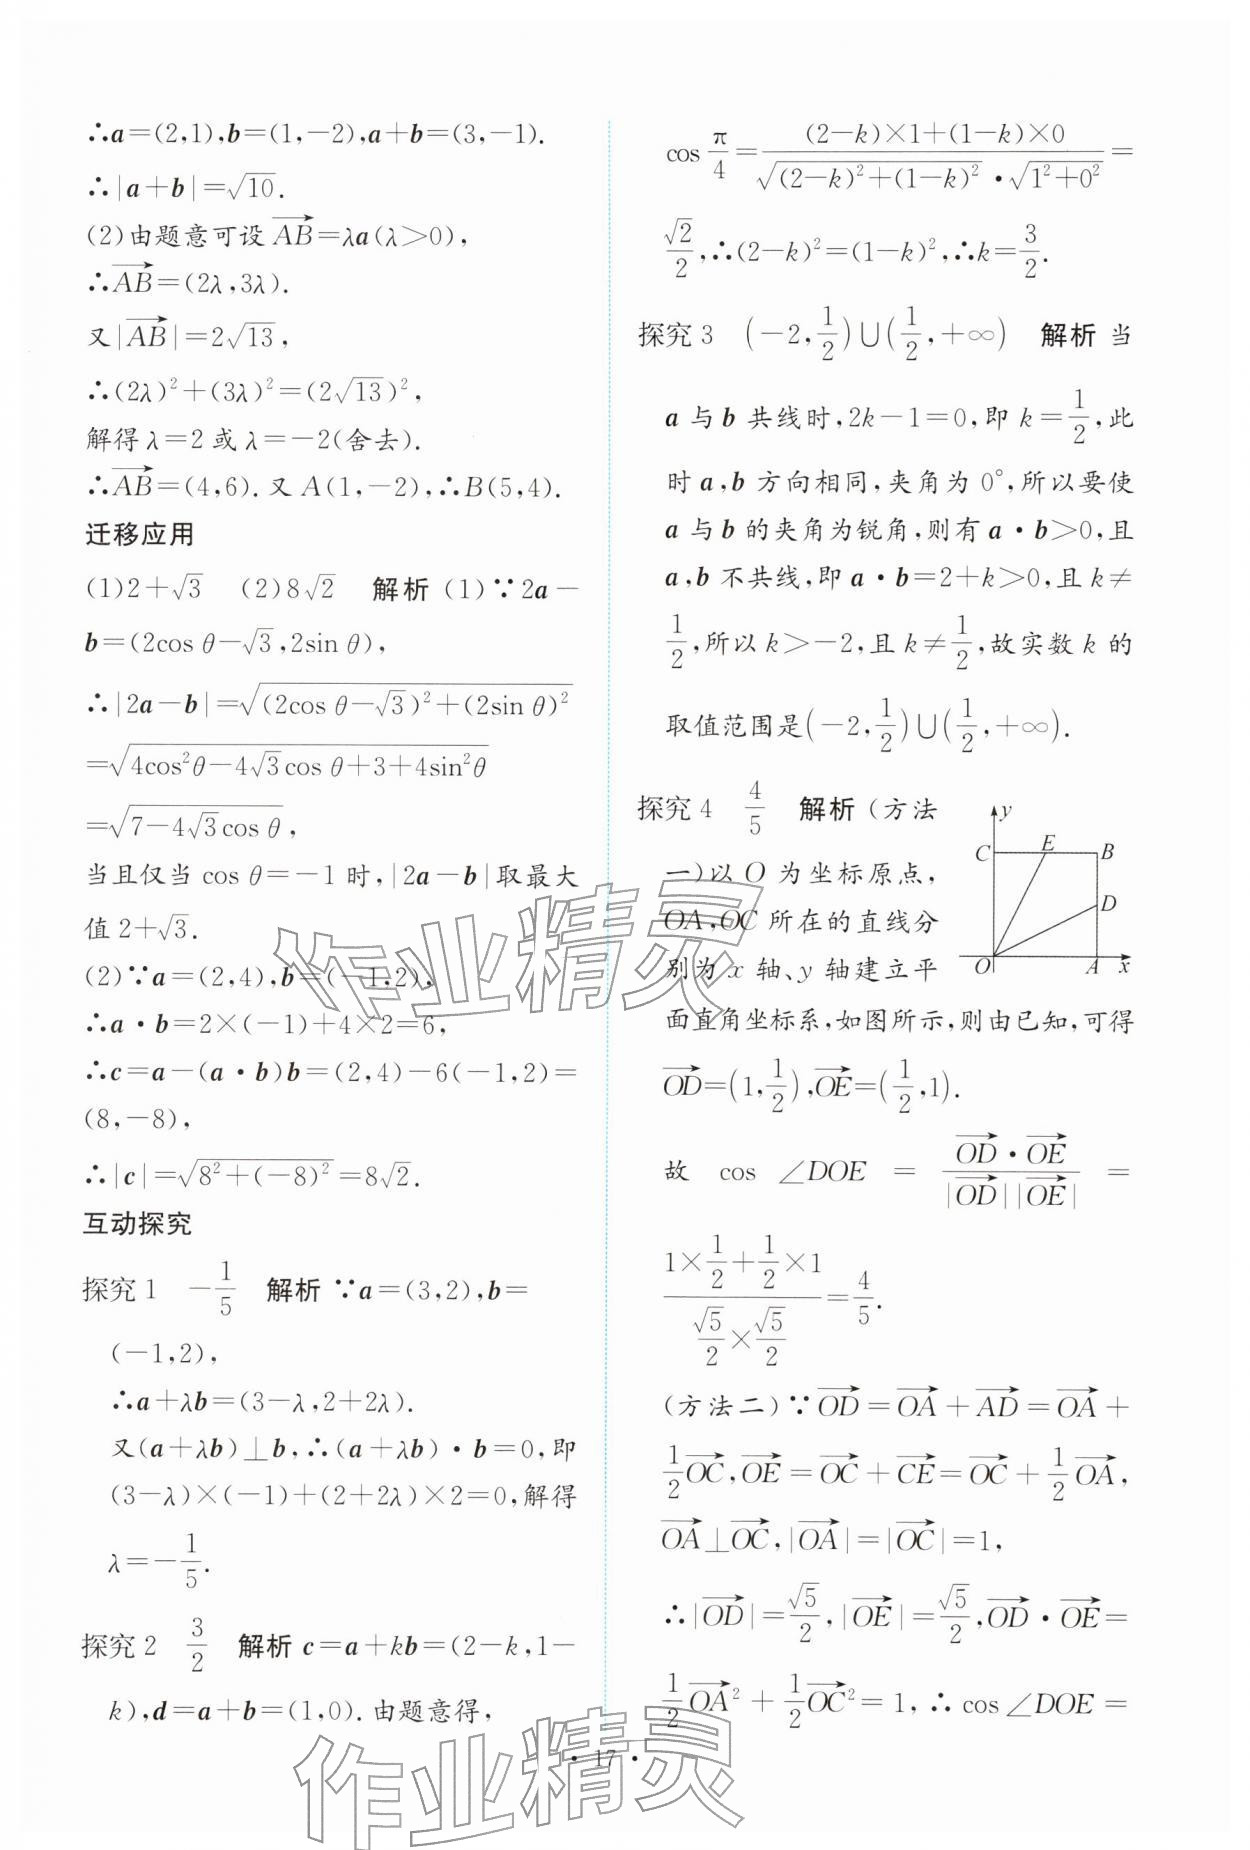 ∴a=(2,1),b=(1,-2),a+b=(3,-1).
∴|a+b|=√10.
(2)由题意可设AB→=λa(λ>0),
∴AB→=(2λ,3λ).
又|AB→|=2√13,
∴(2λ)²+(3λ)²=(2√13)²,
解得λ=2或λ=-2(舍去).
∴AB→=(4,6).又A(1,-2),∴B(5,4).
迁移应用
(1)2+√3 (2)8√2 解析 (1)∵2a-
b=(2cos θ-√3,2sin θ),
∴|2a-b|=√((2cos θ-√3)²+(2sin θ)²)
=√(4cos²θ-4√3cos θ+3+4sin²θ)
=√(7-4√3cos θ),
当且仅当cos θ=-1时,|2a-b|取最大
值2+√3.
(2)∵a=(2,4),b=(-1,2),
∴a·b=2×(-1)+4×2=6,
∴c=a-(a·b)b=(2,4)-6(-1,2)=
(8,-8),
∴|c|=√(8²+(-8)²)=8√2.
互动探究
探究1 -1/5 解析 ∵a=(3,2),b=
(-1,2),
∴a+λb=(3-λ,2+2λ).
又(a+λb)⊥b,∴(a+λb)·b=0,即
(3-λ)×(-1)+(2+2λ)×2=0,解得
λ=-1/5.
探究2 3/2 解析 c=a+kb=(2-k,1-
k),d=a+b=(1,0).由题意得,
cos π/4=((2-k)×1+(1-k)×0)/(√((2-k)²+(1-k)²)·√(1²+0²))=
√2/2,∴(2-k)²=(1-k)²,∴k=3/2.
探究3 (-2,1/2)∪(1/2,+∞) 解析 当
a与b共线时,2k-1=0,即k=1/2,此
时a,b方向相同,夹角为0°,所以要使
a与b的夹角为锐角,则有a·b>0,且
a,b不共线,即a·b=2+k>0,且k≠
1/2,所以k>-2,且k≠1/2,故实数k的
取值范围是(-2,1/2)∪(1/2,+∞).
探究4 4/5 解析 (方法
一)以O为坐标原点,
OA,OC所在的直线分
别为x轴、y轴建立平
面直角坐标系,如图所示,则由已知,可得
y
C E B
D
O A x
OD→=(1,1/2),OE→=(1/2,1).
故 cos ∠DOE = (OD→·OE→)/(|OD→||OE→|) =
(1×1/2+1/2×1)/(√5/2×√5/2)=4/5.
(方法二)∵OD→=OA→+AD→=OA→+
1/2OC→,OE→=OC→+CE→=OC→+1/2OA→,
OA→⊥OC→,|OA→|=|OC→|=1,
∴|OD→|=√5/2,|OE→|=√5/2,OD→·OE→=
1/2OA→²+1/2OC→²=1,∴cos∠DOE=
·17·
作业精灵
作业精灵